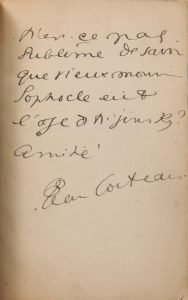 N'est-ce pas
sublime de savoir
que vieux
Sophocle eut
l'âge de Nijinsky?
Amitié
Jean Cocteau